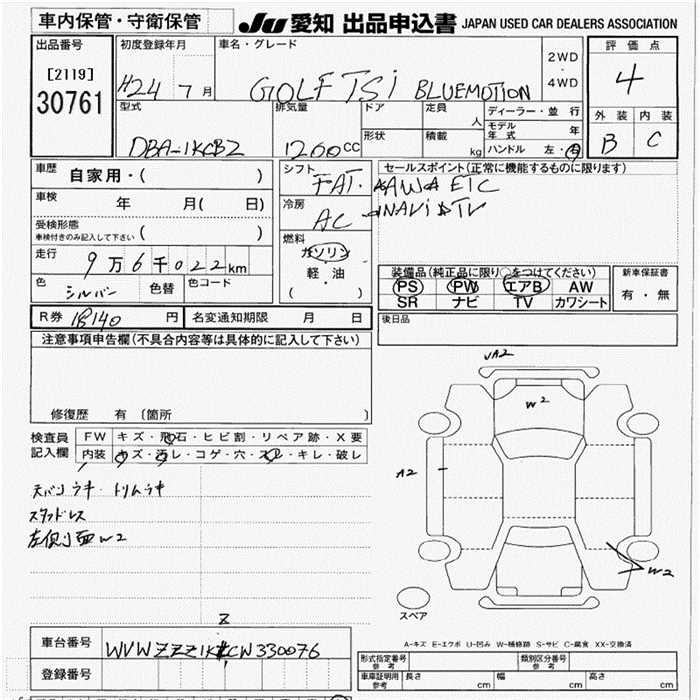 車内保管・守衛保管 JU 愛知 出品申込書 JAPAN USED CAR DEALERS ASSOCIATION
出品番号 初度登録年月 車名・グレード 評価点
[2119]
30761 H24 7 月 GOLF TSI BLUEMOTION 2WD ・ 4WD 4
型式 排気量 ドア 定員 人 ディーラー・並行 外装 内装
モデル年式 年
DBA-1KCBZ 1200 CC 形状 積載 kg ハンドル 左・右 B C
車歴 自家用・( ) シフト FAT セールスポイント(正常に機能するものに限ります)
AW ETC
車検 年 月( 日) 冷房 AC NAVi TV
受検形態
車検付きのみ記入して下さい ( )
燃料 ガソリン
軽・油
( )
走行 9万6千022km
装備品(純正品に限り○をつけてください) 新車保証書
色 シルバー 色替 色コード
PS PW エアB AW 有・無
SR ナビ TV カワシート
R券 円 名変通知期限 月 日 後日品
注意事項申告欄(不具合内容等は具体的に記入して下さい)
修復歴 有 [箇所 ]
検査員記入欄 FW キズ・飛石・ヒビ割・リペア跡・X要
内装 キズ・汚レ・コゲ・穴・スレ・キレ・破レ
天バリウキ トリムウキ
スタッドレス
左側面W2
A2
W2
A2
W2
スペア
A-キズ E-エクボ U-凹み W-補修跡 S-サビ C-腐食 XX-交換済
Z
車台番号 WVWZZZ1KZCW330076
登録番号
形式指定番号 参考 類別区分番号 参考
車庫証明用 参考 長さ cm 幅 cm 高さ cm